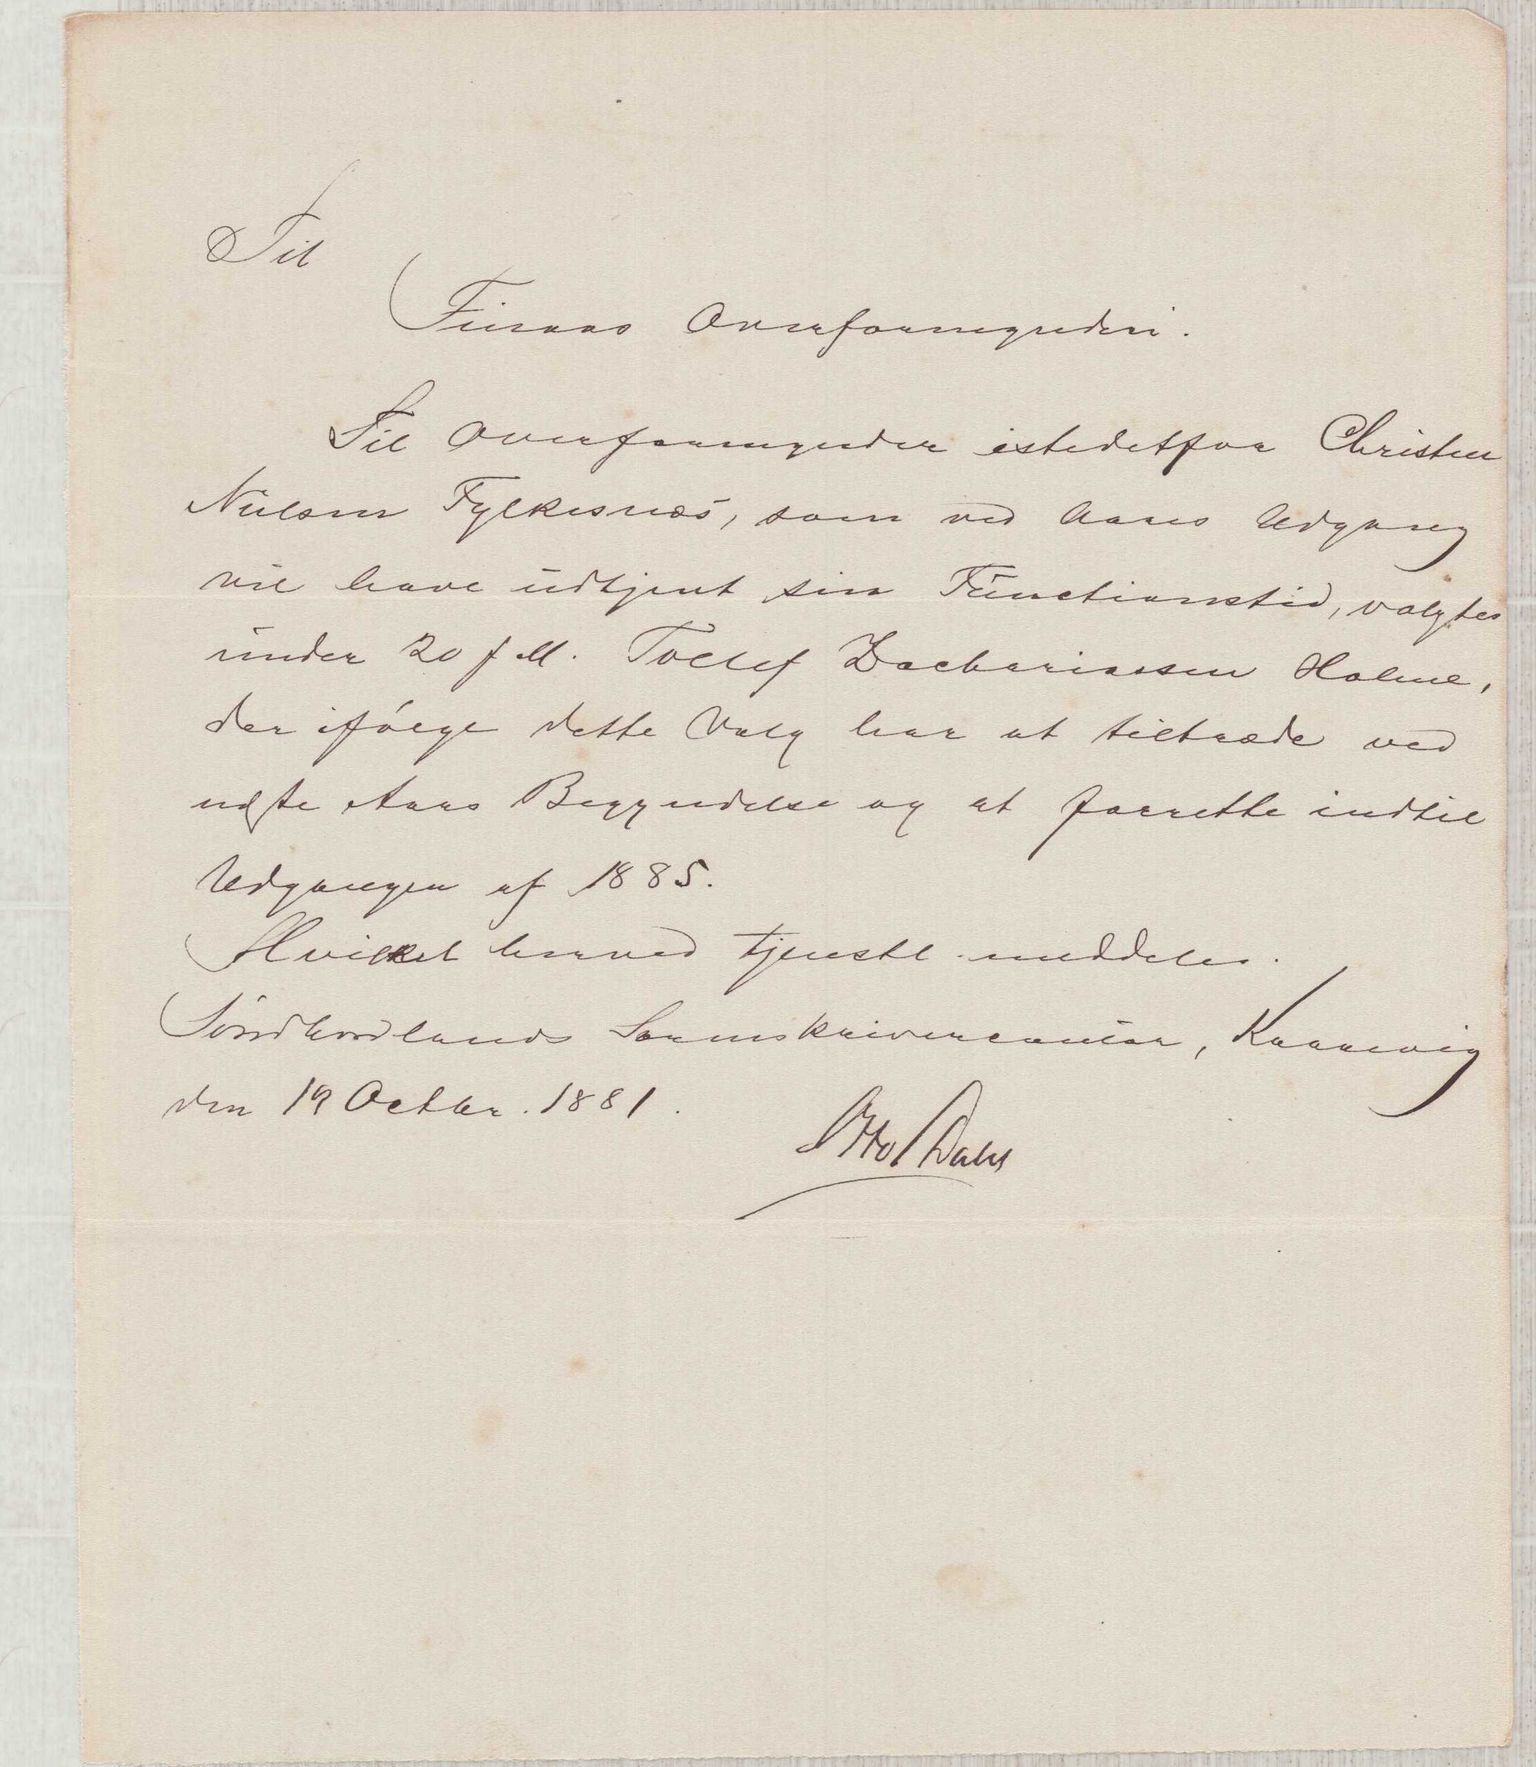 Til
Finaas Overformynderi.
Til Overformynder istedetfor Christen
Nielsen Fylkesnæs, som ved Aarets Udgang
vil have udtjent sin Functionstid, valgtes
under 20 f.M. Tollef Zachariassen Holme,
der ifölge dette Valg har at tiltræde ved
næste Aars Begyndelse og at forrette indtil
Udgangen af 1885.
Hvilket herved tjenstl. meddeles.
Söndhordlands Sorenskrivercontor, Kaarevig
den 19 Octbr. 1881.
Otto Dahl